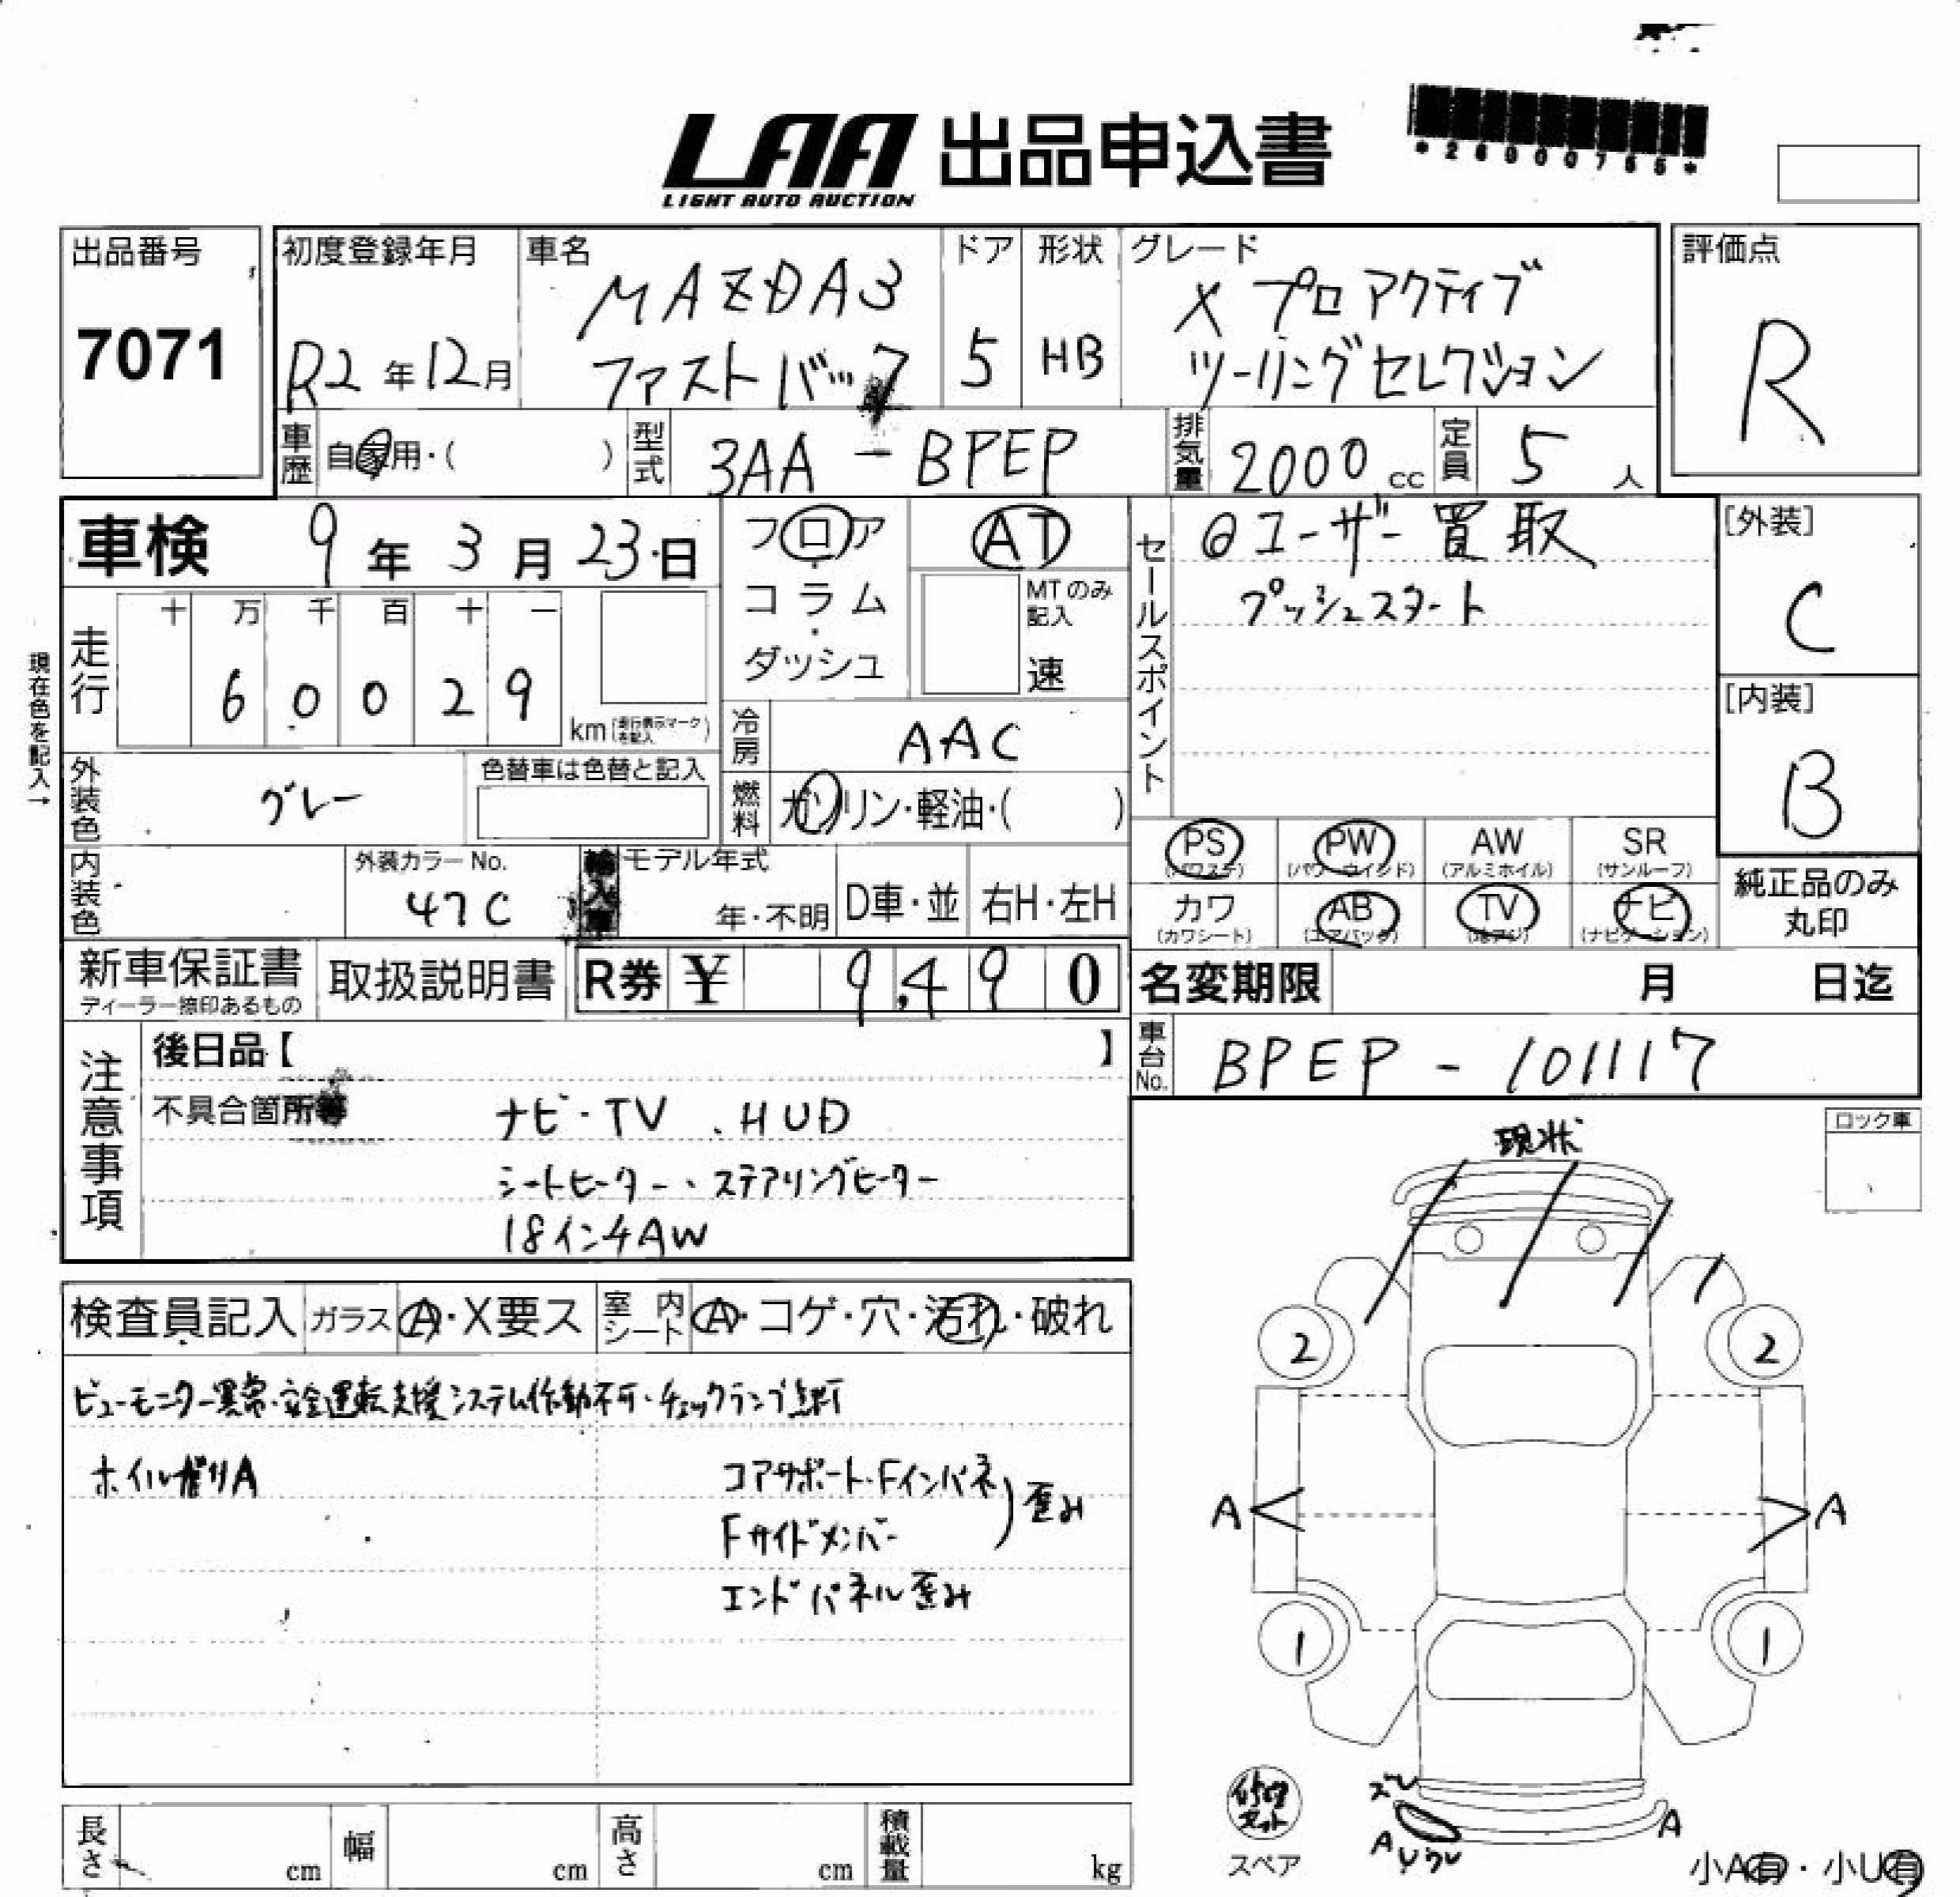 LAA 出品申込書
LIGHT AUTO AUCTION
*26000765*
出品番号
7071
初度登録年月
R2年12月
車名
MAZDA3
ファストバック
ドア
5
形状
HB
グレード
X プロアクティブ
ツーリングセレクション
評価点
R
車歴
自家用・( )
型式
3AA-BPEP
排気量
2000cc
定員
5人
車検 9年3月23日
現在色を記入→
走行
十 万 千 百 十 一
6 0 0 2 9
km(走行表示マークを記入)
フロア
コラム
・
ダッシュ
AT
MTのみ記入
速
冷房
AAC
燃料
ガソリン・軽油・( )
セールスポイント
◎ユーザー買取
プッシュスタート
[外装]
C
[内装]
B
外装色
グレー
色替車は色替と記入
内装色
外装カラーNo.
47C
輸入車
モデル年式
年・不明
D車・並
右H・左H
PS (パワステ)
PW (パワーウインド)
AW (アルミホイル)
SR (サンルーフ)
カワ (カワシート)
AB (エアバック)
TV (地デジ)
ナビ (ナビゲーション)
純正品のみ
丸印
新車保証書
ディーラー捺印あるもの
取扱説明書
R券 ¥ 9,490
名変期限 月 日迄
車台No.
BPEP-101117
注意事項
後日品【 】
不具合箇所等
ナビ・TV、HUD
シートヒーター、ステアリングヒーター
18インチAW
検査員記入
ガラス
A・X要ス
室内シート
A・コゲ・穴・汚れ・破れ
ビューモニター異常・安全運転支援システム作動不可・チェックランプ点灯
ホイルガリA
コアサポート・Fインパネ
Fサイドメンバー
歪み
エンドパネル歪み
ロック車
現状
2
2
A
A
1
1
ズレ
A
A
ワレ
修理キット
スペア
小A有・小U有
長さ cm
幅 cm
高さ cm
積載量 kg